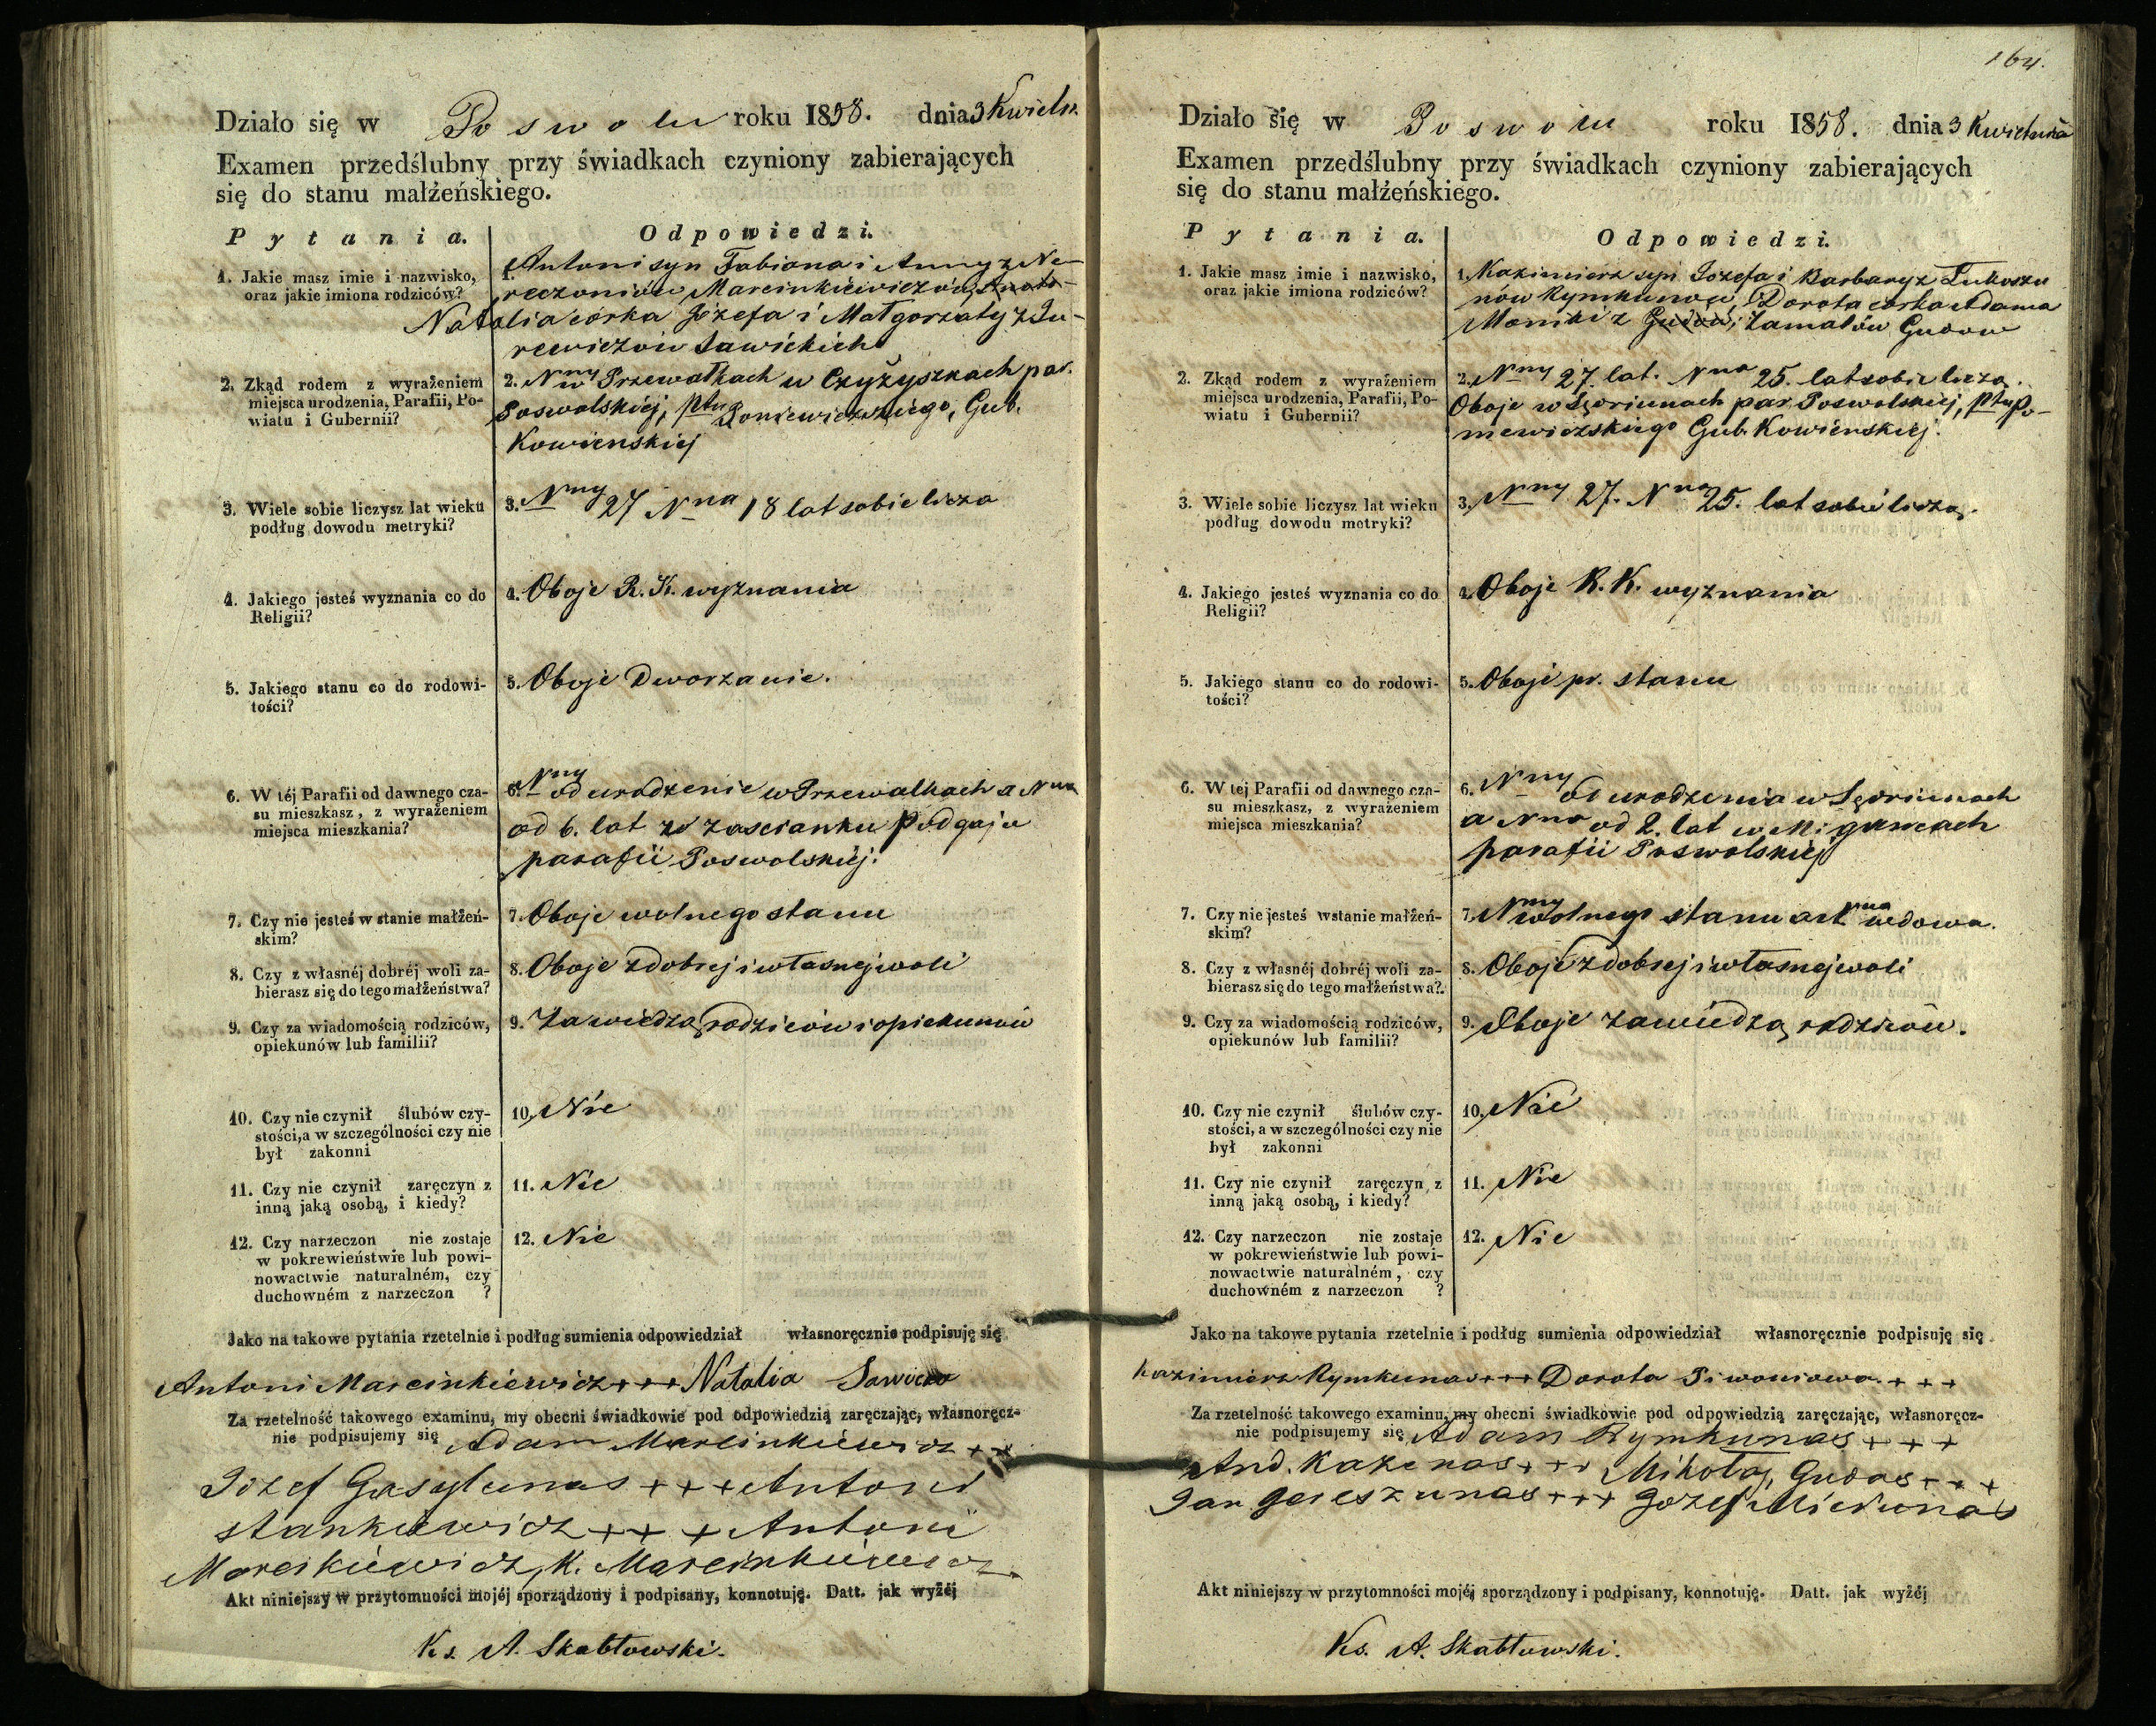 Działo się w Poswolu roku 1858. dnia 3 Kwietn.
Examen przedślubny przy świadkach czyniony zabierających
się do stanu małżeńskiego.
Pytania. Odpowiedzi.
1. Jakie masz imie i nazwisko,
oraz jakie imiona rodziców?
1. Antoni syn Fabiana i Anny z Na-
reczoniów Marcinkiewiczów,
Natalia corka Jozefa i Małgorzaty z Ju-
rewiczow Sawickich
2. Zkąd rodem z wyrażeniem
miejsca urodzenia, Parafii, Po-
wiatu i Gubernii?
2. Nny w Przewałkach w Czyżyszkach par.
Poswolskiej, ptu Poniewiezskiego, Gub.
Kowienskiej
3. Wiele sobie liczysz lat wieku
podług dowodu metryki?
3. Nny 27 Nna 18 lat sobie licza
4. Jakiego jesteś wyznania co do
Religii?
4. Oboje R. K. wyznania
5. Jakiego stanu co do rodowi-
tości?
5. Oboje Dworzanie.
6. W téj Parafii od dawnego cza-
su mieszkasz, z wyrażeniem
miejsca mieszkania?
6. Nny od urodzenie w Przewalkach a Nna
od 6. lat w zascianku Podgaju
parafii Poswolskiej.
7. Czy nie jesteś w stanie małżeń-
skim?
7. Oboje wolnego stanu
8. Czy z własnéj dobréj woli za-
bierasz się do tego małżeństwa?
8. Oboje z dobrej i własnej woli
9. Czy za wiadomością rodziców,
opiekunów lub familii?
9. Za wiedzą rodziców i opiekunow
10. Czy nie czynił ślubów czy-
stości, a w szczególności czy nie
był zakonni
10. Nie
11. Czy nie czynił zaręczyn z
inną jaką osobą, i kiedy?
11. Nie
12. Czy narzeczon nie zostaje
w pokrewieństwie lub powi-
nowactwie naturalném, czy
duchowném z narzeczon ?
12. Nie
Jako na takowe pytania rzetelnie i podług sumienia odpowiedział własnoręcznie podpisuję się
Antoni Marcinkiewicz +++ Natalia Sawicka
Za rzetelność takowego examinu, my obecni świadkowie pod odpowiedzią zaręczając, własnoręcz-
nie podpisujemy się Adam Marcinkiewicz ++
Jozef Gasylunas +++ Antoni
Stankiewicz +++ Antoni
Marcikiewicz, K. Marcinkiewicz.
Akt niniejszy w przytomności mojéj sporządzony i podpisany, konnotuję. Datt. jak wyżéj
Ks. A. Skabłowski.
164.
Działo się w Poswolu roku 1858. dnia 3 Kwietnia
Examen przedślubny przy świadkach czyniony zabierających
się do stanu małżeńskiego.
Pytania. Odpowiedzi.
1. Jakie masz imie i nazwisko,
oraz jakie imiona rodziców?
1. Kazimierz syn Jozefa i Barbary z Łukoszu
nów Rymkunow, Dorota corka Adama
Moniki z Gudow i Zamatów Gudow
2. Zkąd rodem z wyrażeniem
miejsca urodzenia, Parafii, Po-
wiatu i Gubernii?
2. Nny 27. lat. Nna 25. lat sobie licza.
Oboje w par. Poswolskiej, ptu Po-
niewiezskiego Gub. Kowienskiej.
3. Wiele sobie liczysz lat wieku
podług dowodu metryki?
3. Nny 27. Nna 25. lat sobie liczą.
4. Jakiego jesteś wyznania co do
Religii?
4. Oboje R. K. wyznania
5. Jakiego stanu co do rodowi-
tości?
5. Oboje pr. stanu
6. W téj Parafii od dawnego cza-
su mieszkasz, z wyrażeniem
miejsca mieszkania?
6. Nny od urodzenia w
a Nna od 2. lat w
parafii Poswolskiej
7. Czy nie jesteś wstanie małżeń-
skim?
7. Nny wolnego stanu a Nna wdowa.
8. Czy z własnéj dobréj woli za-
bierasz się do tego małżeństwa?
8. Oboje z dobrej i własnej woli
9. Czy za wiadomością rodziców,
opiekunów lub familii?
9. Oboje za wiedzą rodziców.
10. Czy nie czynił ślubów czy-
stości, a w szczególności czy nie
był zakonni
10. Nie
11. Czy nie czynił zaręczyn z
inną jaką osobą, i kiedy?
11. Nie
12. Czy narzeczon nie zostaje
w pokrewieństwie lub powi-
nowactwie naturalném, czy
duchowném z narzeczon ?
12. Nie
Jako na takowe pytania rzetelnie i podług sumienia odpowiedział własnoręcznie podpisuję się
Kazimierz Rymkunas +++ Dorota Piwoniowa +++
Za rzetelność takowego examinu, my obecni świadkowie pod odpowiedzią zaręczając, własnoręcz-
nie podpisujemy się Adam Rymkunas +++
And. Kazenas +++ Mikołaj Gudas +++
Jan +++ Jozef Mickunas
Akt niniejszy w przytomności mojéj sporządzony i podpisany, konnotuję. Datt. jak wyżéj
Ks. A. Skabłowski.